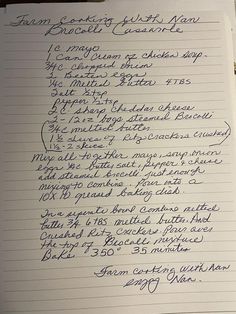 Farm Cooking With Nan
Broccoli Casserole
1 C mayo
1 can Cream of chicken soup
3/4 C chopped onion
2 Beaten eggs
1/4 C Melted Butter 4 TBS
Salt 1 tsp
Pepper 1 tsp
2 C sharp cheddar cheese
2 - 12 oz bags steamed Broccoli
3/4 C melted butter
1 1/2 sleeves of Ritz Crackers Crushed
Mix all together mayo, soup, onion
eggs 1/4 C butter, salt, pepper, & cheese
add steamed broccoli just enough
mixing to combine. Pour into a
10x10 greased baking dish.
In a separate bowl combine melted
butter 3/4 6 TBS melted butter. And
Crushed Ritz crackers. Pour over
the top of Broccoli mixture
Bake 350° 35 minutes
Farm Cooking with Nan
enjoy Nan.